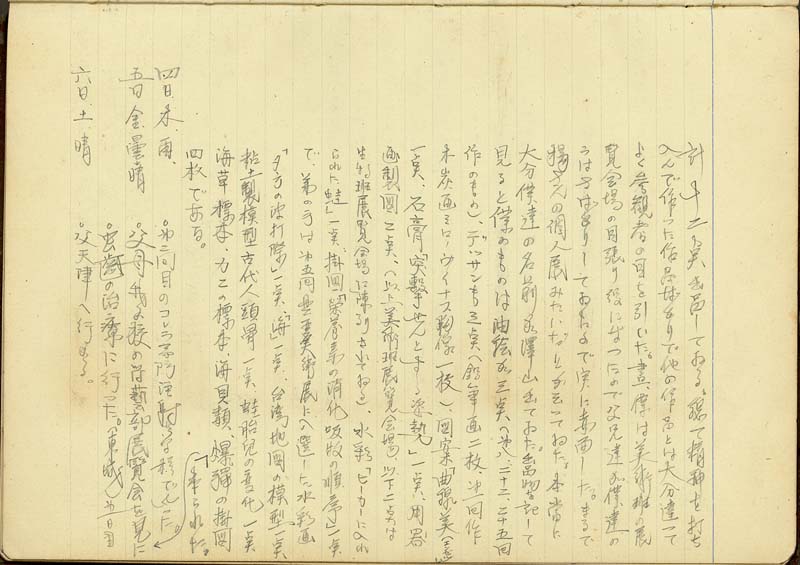 計十二点出品しておる。総て精神を打ち
込んで作った作品ばかりで他の作品とは大分違って
よく参観者の目を引いた。書、僕は美術班の展
覧会場の見張り役になったので父兄達が僕達の
うはさばかりしておるので実に赤面した。まるで
楊さんの個人展みたいだ。と云っておた。本当に
大分僕達の名前が沢山出ておた。出品物を記して
見ると僕のものは油絵が三点(第二十二、二十五回
作のもの)、デッサンも三点(鉛筆画二枚、第一回作
木炭画ミローヴィナス胸像一枚)、図案「曲線美」
一点、石膏「突撃せんとする姿勢」一点、用器
画製図二点、(以上美術班展覧会場)以下二点は
生物班展覧会場に陳列されておる)、水彩「ビーカーに入れ
られた蛙」一点、掛図「栄養素の消化吸収の順序」一点
で、弟の方は第五回台陽美術展に入選した水彩画
「夕方の波打際」一点、「海」一点、台湾地図の模型一点
粘土製模型古代人頭骨一点、蛙胎児の変化一点
海草標本、カニの標本、海貝類、爆弾の掛図
四枚である。
四日、木、雨、 。第二回目のコレラ予防注射学校でした。
五日 金、曇晴 。父母我が校の文藝部展覧会を見に
来られた。
。虫歯の治療に行った。 第五日目
六日、土 晴 。父天津へ行かる。